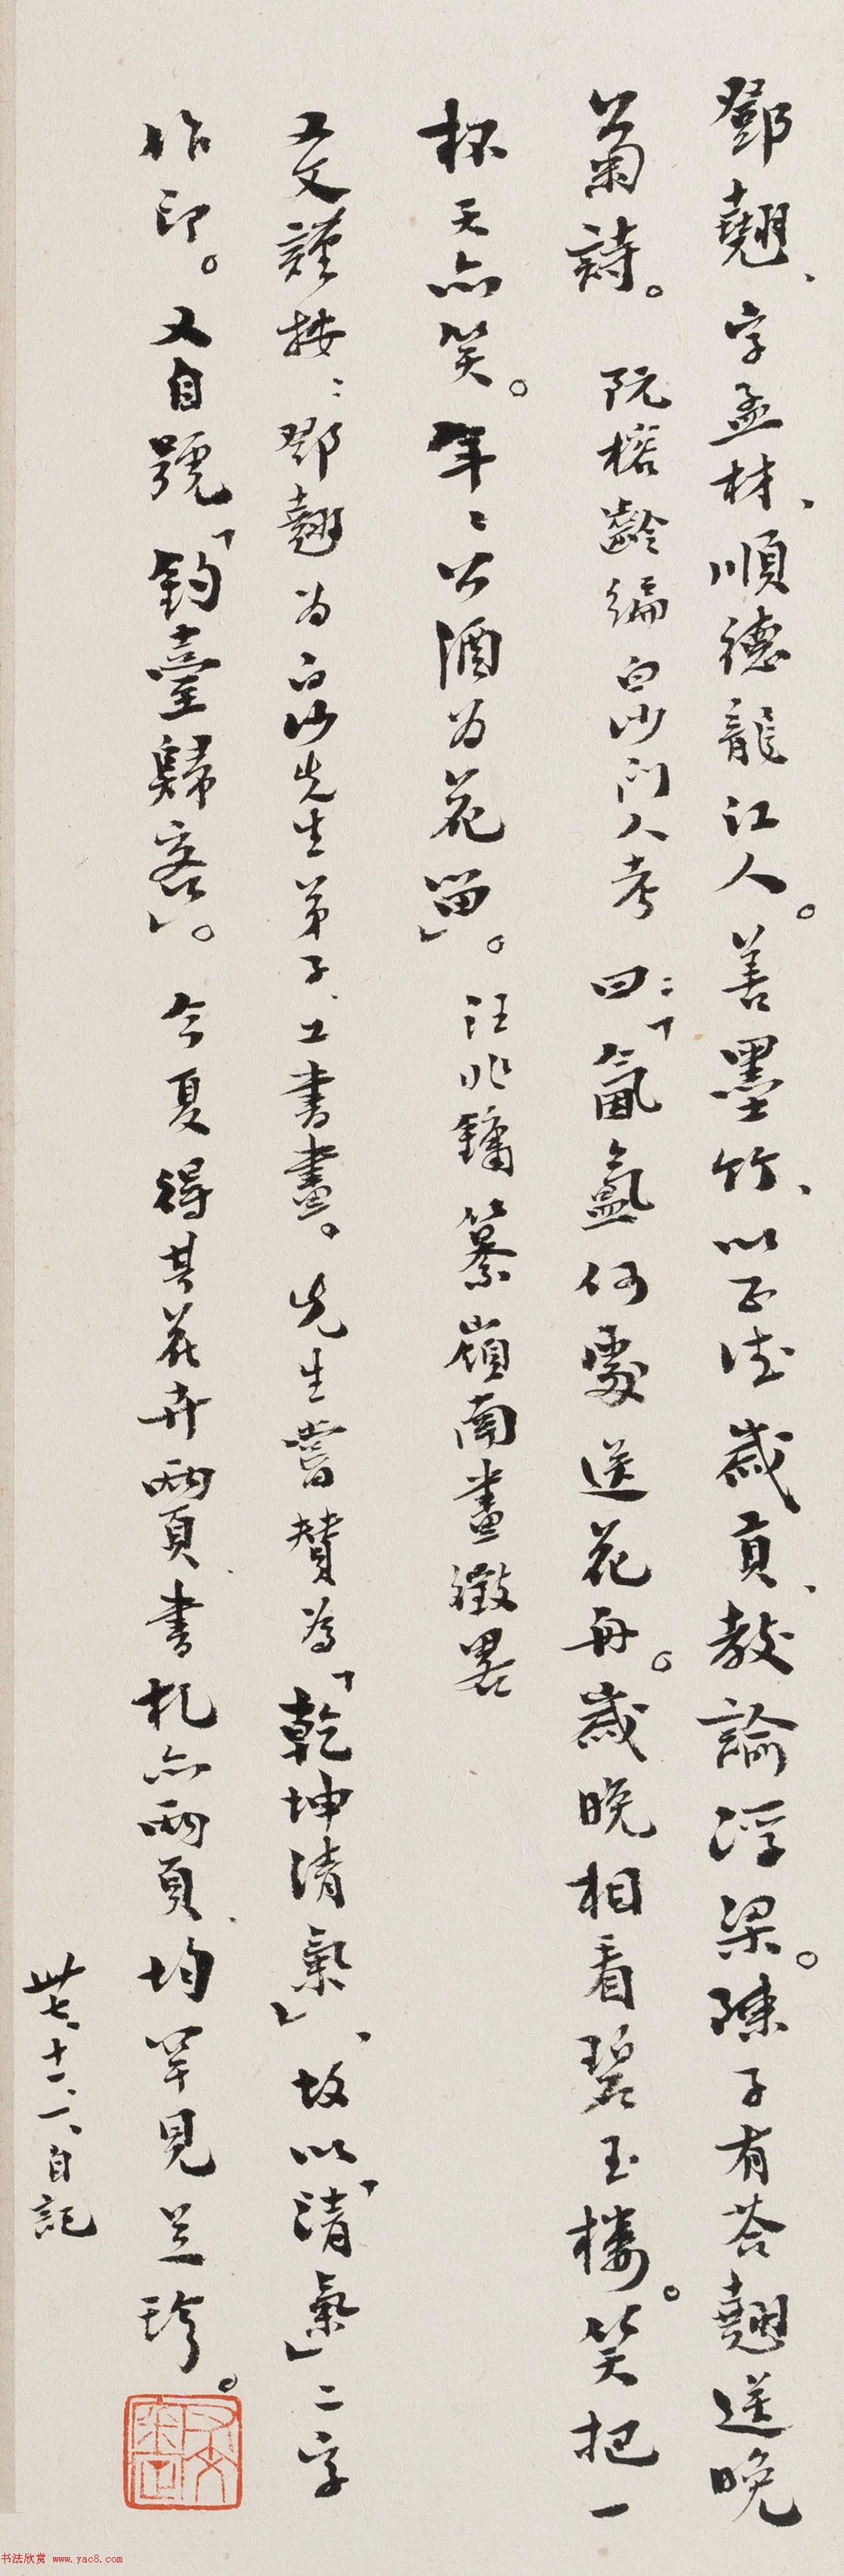 鄧翹、字孟材、順德龍江人。善墨竹、以正德歲貢、教諭浮梁。陳子有荅翹送晚
菊詩。阮榕齡編白沙門人考曰：「氤氳何處送花舟。歲晚相看碧玉樓。笑把一
杯天亦笑。年〻公酒為花留」。汪兆鏞纂嶺南畫徵畧
文謹按：鄧翹为白沙先生弟子、工書畫。先生嘗贊為「乾坤清氣」、故以「清氣」二字
作印。又自號「釣臺歸客」。今夏得其花卉兩頁、書札亦兩頁、均罕見足珍。
卅七、十一、一、自記
书法欣赏 www.yac8.com